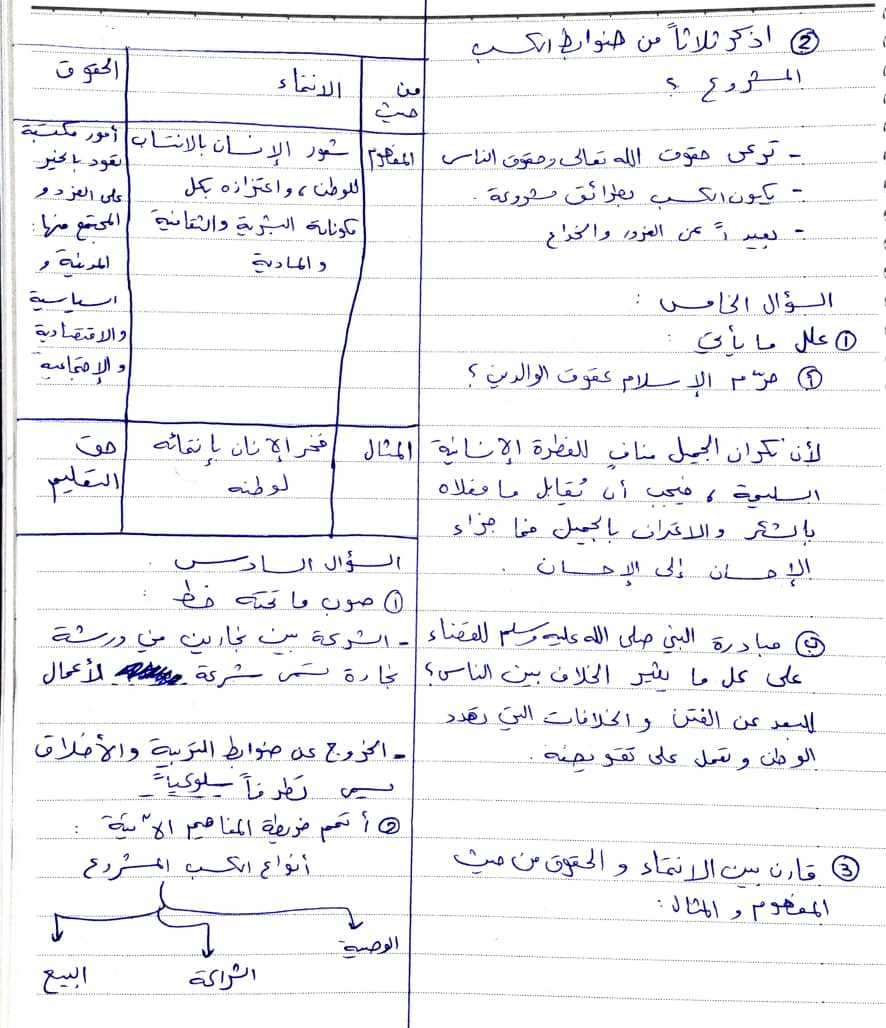 ② اذكر ثلاثاً من ضوابط الكسب
المشروع ؟
- ترعى حقوق الله تعالى وحقوق الناس
- يكون الكسب بطرائق مشروعة .
- بعيداً عن الغرور والخداع
السؤال الخامس :
① علل ما يأتي :
أ) حرّم الإسلام عقوق الوالدين ؟
لأن نكران الجميل منافٍ للفطرة الإنسانية
السليمة ، فيجب أن نُقابل ما فعلاه
بالشكر والاعتراف بالجميل فما جزاء
الإحسان إلى الإحسان .
ب) مبادرة النبي صلى الله عليه وسلم للقضاء
على كل ما يثير الخلاف بين الناس ؟
للبعد عن الفتن والخلافات التي تهدد
الوطن وتعمل على تقويضه .
③ قارن بين الانتماء و الحقوق من حيث
المفهوم و المثال :
من حيث
الانتماء
الحقوق
المفهوم
شعور الإنسان بالانتساب
للوطن ، واعتزازه بكل
مكوناته البشرية والثقافية
والمادية
أمور مكتسبة
تعود بالخير
على الفرد و
المجتمع منها :
المدنية و
السياسية
والاقتصادية
والإجتماعية
المثال
فخر الإنسان بإنتمائه
لوطنه
حق
التعليم
السؤال السادس .
① صوب ما تحته خط :
- الشركة بين نجارين في ورشة
نجارة تسمى شركة لأعمال
- الخروج عن ضوابط التربية والأخلاق
يسمى تطرفاً سلوكياً
② أتمم خريطة المفاهيم الآتية :
أنواع الكسب المشروع
الوصية
الشراكة
البيع